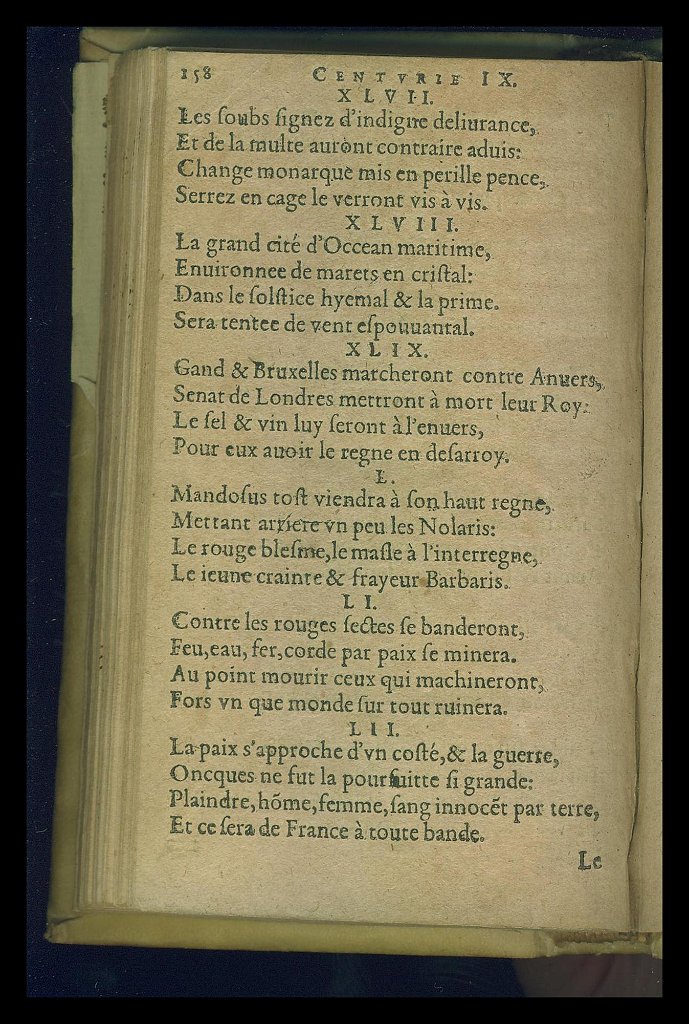 158 CENTVRIE IX.
XLVII.
Les ſoubs ſignez d'indigne deliurance,
Et de la multe auront contraire aduis:
Change monarque mis en perille pence,
Serrez en cage le verront vis à vis.
XLVIII.
La grand cité d'Occean maritime,
Enuironnee de marets en criſtal:
Dans le ſolſtice hyemal & la prime.
Sera tentee de vent eſpouuantal.
XLIX.
Gand & Bruxelles marcheront contre Anuers,
Senat de Londres mettront à mort leur Roy:
Le ſel & vin luy ſeront à l'enuers,
Pour eux auoir le regne en deſarroy.
L.
Mandoſus toſt viendra à ſon haut regne,
Mettant arriere vn peu les Nolaris:
Le rouge bleſme,le maſle à l'interregne,
Le ieune crainte & frayeur Barbaris.
LI.
Contre les rouges ſectes ſe banderont,
Feu,eau, fer,corde par paix ſe minera.
Au point mourir ceux qui machineront,
Fors vn que monde ſur tout ruinera.
LII.
La paix s'approche d'vn coſté,& la guerre,
Oncques ne fut la pourſuitte ſi grande:
Plaindre,hõme,femme,ſang innocẽt par terre,
Et ce ſera de France à toute bande.
Le